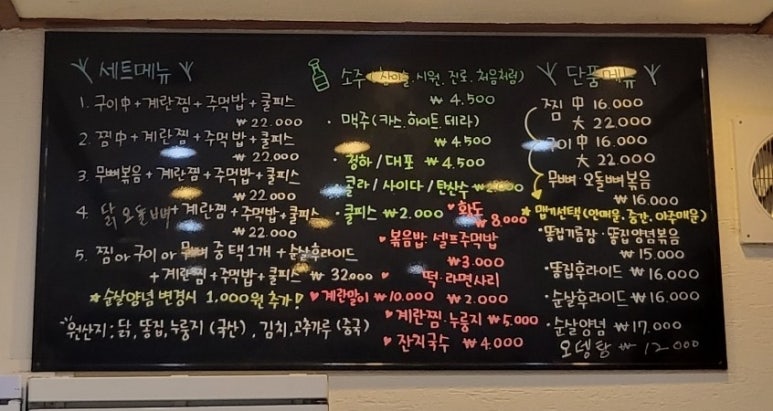 세트메뉴
1. 구이中+계란찜+주먹밥+쿨피스
₩ 22.000
2. 찜中+계란찜+주먹밥+쿨피스
₩ 22.000
3. 무뼈볶음+계란찜+주먹밥+쿨피스
₩ 22.000
4. 닭오돌뼈+계란찜+주먹밥+쿨피스
₩ 22.000
5. 찜 or 구이 or 무뼈 중 택1개 + 순살후라이드
+계란찜+주먹밥+쿨피스 ₩ 32000
★순살양념 변경시 1,000원 추가!
원산지: 닭, 똥집, 누룽지 (국산), 김치, 고추가루 (중국)
소주 (참이슬. 시원. 진로. 처음처럼)
₩ 4.500
· 맥주 (카스. 하이트. 테라)
₩ 4500
· 청하 / 대포 ₩ 4.500
콜라 / 사이다 / 탄산수
· 쿨피스 ₩ 2.000
♥화도
₩ 8.000
♥볶음밥. 셀프주먹밥
₩3.000
♥떡·라면사리
₩ 2.000
♥계란말이 ₩10.000
♥계란찜·누룽지 ₩5.000
♥잔치국수 ₩ 4.000
단품메뉴
찜 中 16.000
大 22.000
구이 中 16.000
大 22.000
무뼈·오돌뼈볶음
₩ 16.000
★맵기선택 (안매움. 중간. 아주매움)
*똥집기름장·똥집양념볶음
₩ 15.000
·똥집후라이드 ₩16.000
·순살후라이드 ₩16.000
·순살양념 ₩17.000
오뎅탕 ₩ 12000